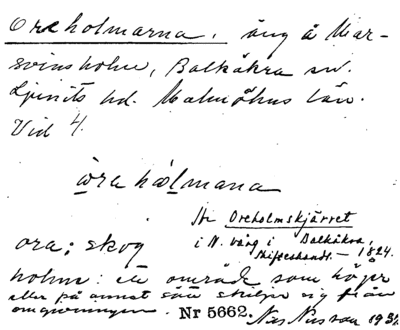 Oreholmarna, äng å Mar-
svinsholm, Balkåkra sn.
Ljunits hd. Malmöhus län.
Vid 4.
òra hòlmana
Oreholmskjärret
i N. vång i Balkåkra,
Skifteshandl. – 1824.
ora: skog
holm: ett område som höjer
eller på annat sätt skiljer sig från
omgivningen. Nr 5662. Nils Nilsson 193